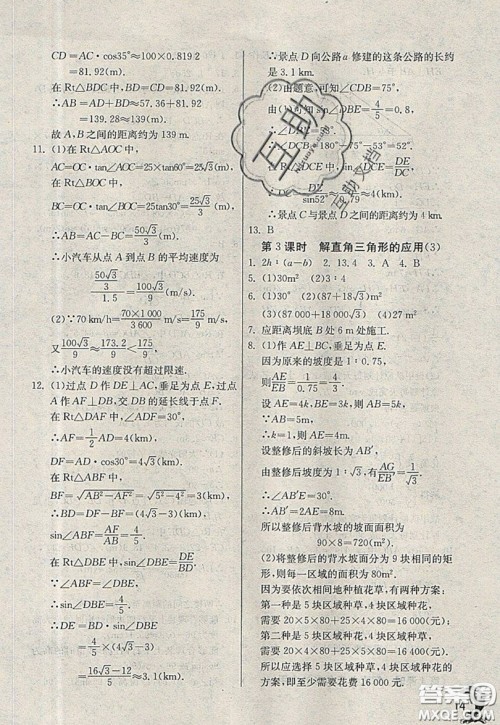 CD=AC·cos35°≈100×0.8192
=81.92(m).
在Rt△DBC中,BD=CD=81.92(m).
∴AB=AD+BD≈57.36+81.92
=139.28≈139(m).
故A,B之间的距离约为139 m.
11. (1)在Rt△AOC中,
AC=OC·tan∠AOC=25×tan60°=25√3(m).
在Rt△BOC中,
BC=OC·tan∠BOC=25×tan30°=25√3/3(m).
∴AB=AC-BC=50√3/3(m).
∴小汽车从点A到点B的平均速度为
(50√3/3)/1.5=100√3/9(m/s).
(2)∵70 km/h=70×1000/3600=175/9(m/s),
又100√3/9≈173.2/9<175/9,
∴小汽车的速度没有超过限速.
12. (1)过点D作DE⊥AC,垂足为点E,过点
A作AF⊥DB,交DB的延长线于点F.
在Rt△DAF中,∠ADF=30°,
∴AF=1/2AD=4(km).
DF=AD·cos30°=4√3(km).
在Rt△ABF中,
BF=√(AB²-AF²)=√(5²-4²)=3(km).
∴BD=DF-BF=(4√3-3)(km).
∴sin∠ABF=AF/AB=4/5.
在Rt△DBE中,sin∠DBE=DE/BD.
∵∠ABF=∠DBE,
∴sin∠DBE=4/5.
∴DE=BD·sin∠DBE=4/5×(4√3-3)
=(16√3-12)/5≈3.1(km).
∴景点D向公路a修建的这条公路的长约
是3.1 km.
(2)由题意,可知∠CDB=75°,
由(1)可知sin∠DBE=4/5=0.8,
∴∠DBE≈
∴∠DCB=180°-75°-52°=
在Rt△DCE中,sin∠DCE=DE/DC,
∴DC=≈4(km).
∴景点C与景点D之间的距离约为4 km.
13. B
第3课时 解直角三角形的应用(3)
1. 2h:(a-b) 2. 13.4 3. A 4. B
5. (1)30m² (2)20m²
6. (1)30m (2)(87+18√3)m
(3)(87000+18000√3)m³
7. 应距离坝底B处6m处施工.
8. (1)作AE⊥BC,垂足为E.
因为原来的坡度是1:0.75,
则AE/EB=1/0.75=4/3.
设AE=4k,BE=3k,∴AB=5k.
又∵AB=5m,
∴k=1,则AE=4m.
设整修后的斜坡长为AB′,
由整修后坡度为1:√3,有AE/EB′=1/√3.
∴∠AB′E=30°.
∴AB′=2AE=8m.
所以整修后背水坡的坡面面积为
90×8=720(m²).
(2)将整修后的背水坡面分为9块相同的矩
形,则每一区域的面积为80m².
因为要依次相间地种植花草,有两种方案:
第一种是5块区域种草,4块区域种花,
需要20×5×80+25×4×80=16000(元);
第二种是5块区域种花,4块区域种草,
需要20×4×80+25×5×80=16400(元).
所以应选择5块区域种草,4块区域种花的
方案,至少需要花费16000元.
互助文档
14
答案圈
MXQE.COM